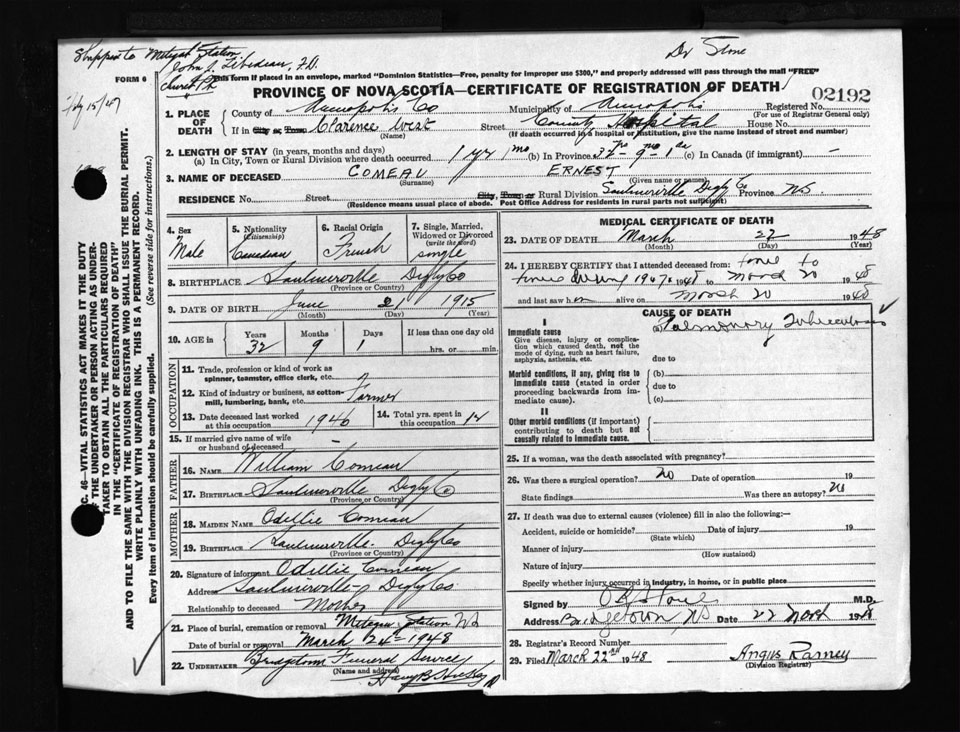 Shipped to Meteghan Station
John S. Thibodeau, F.D.
Church Pt
Dr Stone
FORM 6
This form if placed in an envelope, marked "Dominion Statistics—Free, penalty for improper use $300," and properly addressed will pass through the mail "FREE"
PROVINCE OF NOVA SCOTIA—CERTIFICATE OF REGISTRATION OF DEATH
02192
(For use of Registrar General only)
1. PLACE OF DEATH
County of Annapolis Co Municipality of Annapolis Registered No.
If in City, or Town, Clarence West Street County Hospital House No.
(If death occurred in a hospital or institution, give the name instead of street and number)
2. LENGTH OF STAY (in years, months and days)
(a) In City, Town or Rural Division where death occurred 1 yr 1 mo (b) In Province 32 yrs 9 mo 1 da (c) In Canada (if immigrant) —
3. NAME OF DECEASED COMEAU ERNEST
(Surname) (Given name or names)
RESIDENCE No. Street City, Town or Rural Division Saulnierville Digby Co Province N.S.
(Residence means usual place of abode. Post Office Address for residents in rural parts not sufficient)
4. Sex Male
5. Nationality (Citizenship) Canadian
6. Racial Origin French
7. Single, Married, Widowed or Divorced (write the word) single
8. BIRTHPLACE Saulnierville Digby Co
(Province or Country)
9. DATE OF BIRTH June 21 1915
(Month) (Day) (Year)
10. AGE in Years 32 Months 9 Days 1 If less than one day old hrs. or min.
OCCUPATION
11. Trade, profession or kind of work as spinner, teamster, office clerk, etc.
12. Kind of industry or business, as cotton-mill, lumbering, bank, etc. Farmer
13. Date deceased last worked at this occupation 1946
14. Total yrs. spent in this occupation 12
15. If married give name of wife or husband of deceased —
FATHER
16. NAME William Comeau
17. BIRTHPLACE Saulnierville Digby Co
(Province or Country)
MOTHER
18. MAIDEN NAME Odellie Comeau
19. BIRTHPLACE Saulnierville Digby Co
(Province or Country)
20. Signature of informant Odellie Comeau
Address Saulnierville Digby Co
Relationship to deceased Mother
21. Place of burial, cremation or removal Meteghan Station NS
Date of burial or removal March 24 - 1948
22. UNDERTAKER Bridgetown Funeral Service
(Name and address)
MEDICAL CERTIFICATE OF DEATH
23. DATE OF DEATH March 22 1948
(Month) (Day) (Year)
24. I HEREBY CERTIFY that I attended deceased from: time to
time during 1947 to March 20 1948
and last saw him alive on March 20 1948
CAUSE OF DEATH
I
Immediate cause
Give disease, injury or complication which caused death, not the mode of dying, such as heart failure, asphyxia, asthenia, etc.
(a) Pulmonary Tuberculosis
due to
Morbid conditions, if any, giving rise to immediate cause (stated in order proceeding backwards from immediate cause).
(b)
due to
(c)
II
Other morbid conditions (if important) contributing to death but not causally related to immediate cause.
25. If a woman, was the death associated with pregnancy?
26. Was there a surgical operation? no Date of operation 19
State findings Was there an autopsy? no
27. If death was due to external causes (violence) fill in also the following:—
Accident, suicide or homicide? Date of injury 19
(State which)
Manner of injury
(How sustained)
Nature of injury
Specify whether injury occurred in industry, in home, or in public place
Signed by Stone M.D.
Bridgetown NS Date 22 March 1948
28. Registrar's Record Number
29. Filed March 22nd 1948 Angus Ramey
(Division Registrar)
SEC. 46—VITAL STATISTICS ACT MAKES IT THE DUTY
OF THE UNDERTAKER OR PERSON ACTING AS UNDERTAKER TO OBTAIN ALL THE PARTICULARS REQUIRED
IN THE "CERTIFICATE OF REGISTRATION OF DEATH"
AND TO FILE THE SAME WITH THE DIVISION REGISTRAR WHO SHALL ISSUE THE BURIAL PERMIT.
WRITE PLAINLY WITH UNFADING INK. THIS IS A PERMANENT RECORD.
Every item of information should be carefully supplied. (See reverse side for instructions.)